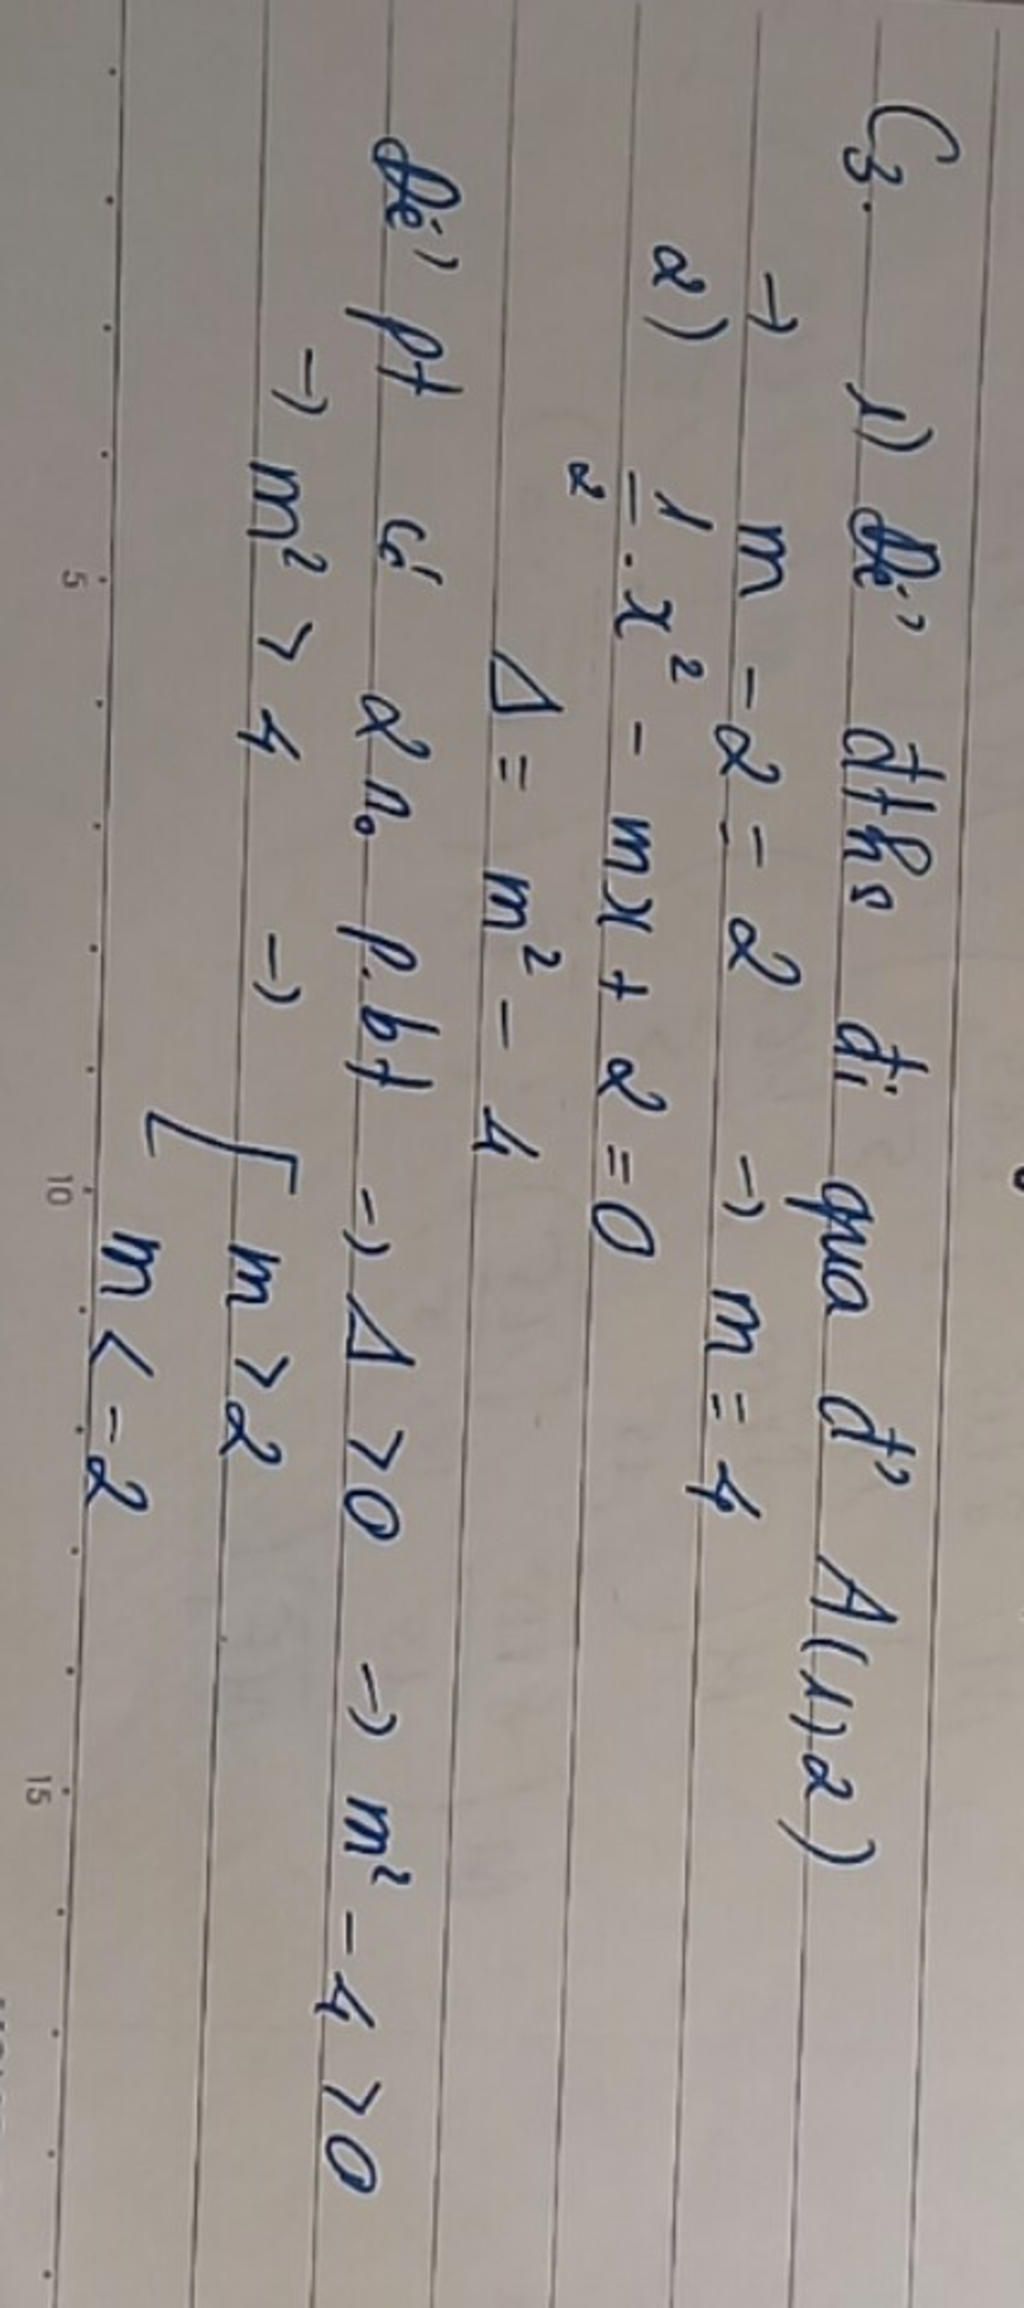 C3. 1) Để đths đi qua đ' A(1,2)
→ m - 2 = 2 → m = 4
2) 1/2 . x² - mx + 2 = 0
Δ = m² - 4
Để pt có 2 n₀ p.bt → Δ > 0 → m² - 4 > 0
→ m² > 4 → [ m > 2
m < -2
5 10 15